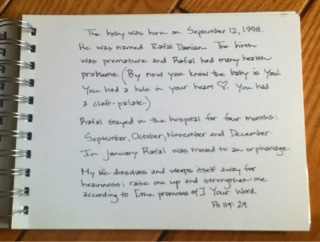 The baby was born on September 12, 1998.
He was named Rafal Damian. The birth
was premature and Rafal had many health
problems. (By now you know the baby is You!
You had a hole in your heart ♡. You had
a cleft-palate.)
Rafal stayed in the hospital for four months:
September, October, November and December.
In January Rafal was moved to an orphanage.
My life dissolves and weeps itself away for
heaviness; raise me up and strengthen me
according to [the promises of] Your Word.
Ps 119:29